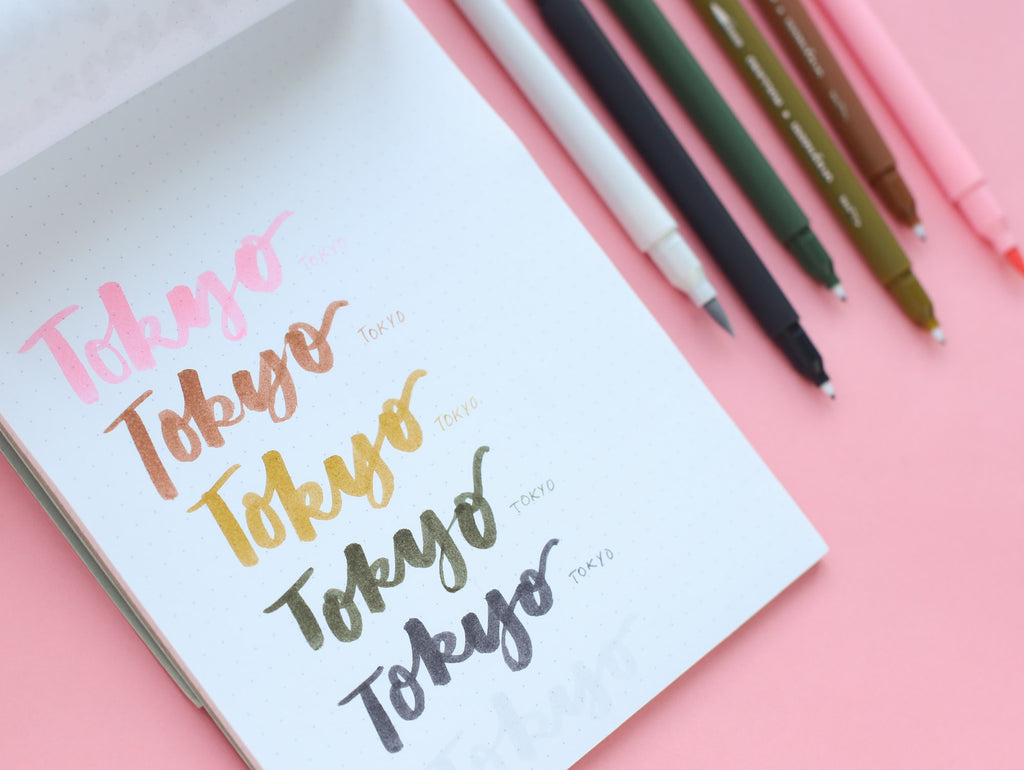 Tokyo TOKYO
Tokyo TOKYO
Tokyo TOKYO
Tokyo TOKYO
Tokyo TOKYO
Tokyo